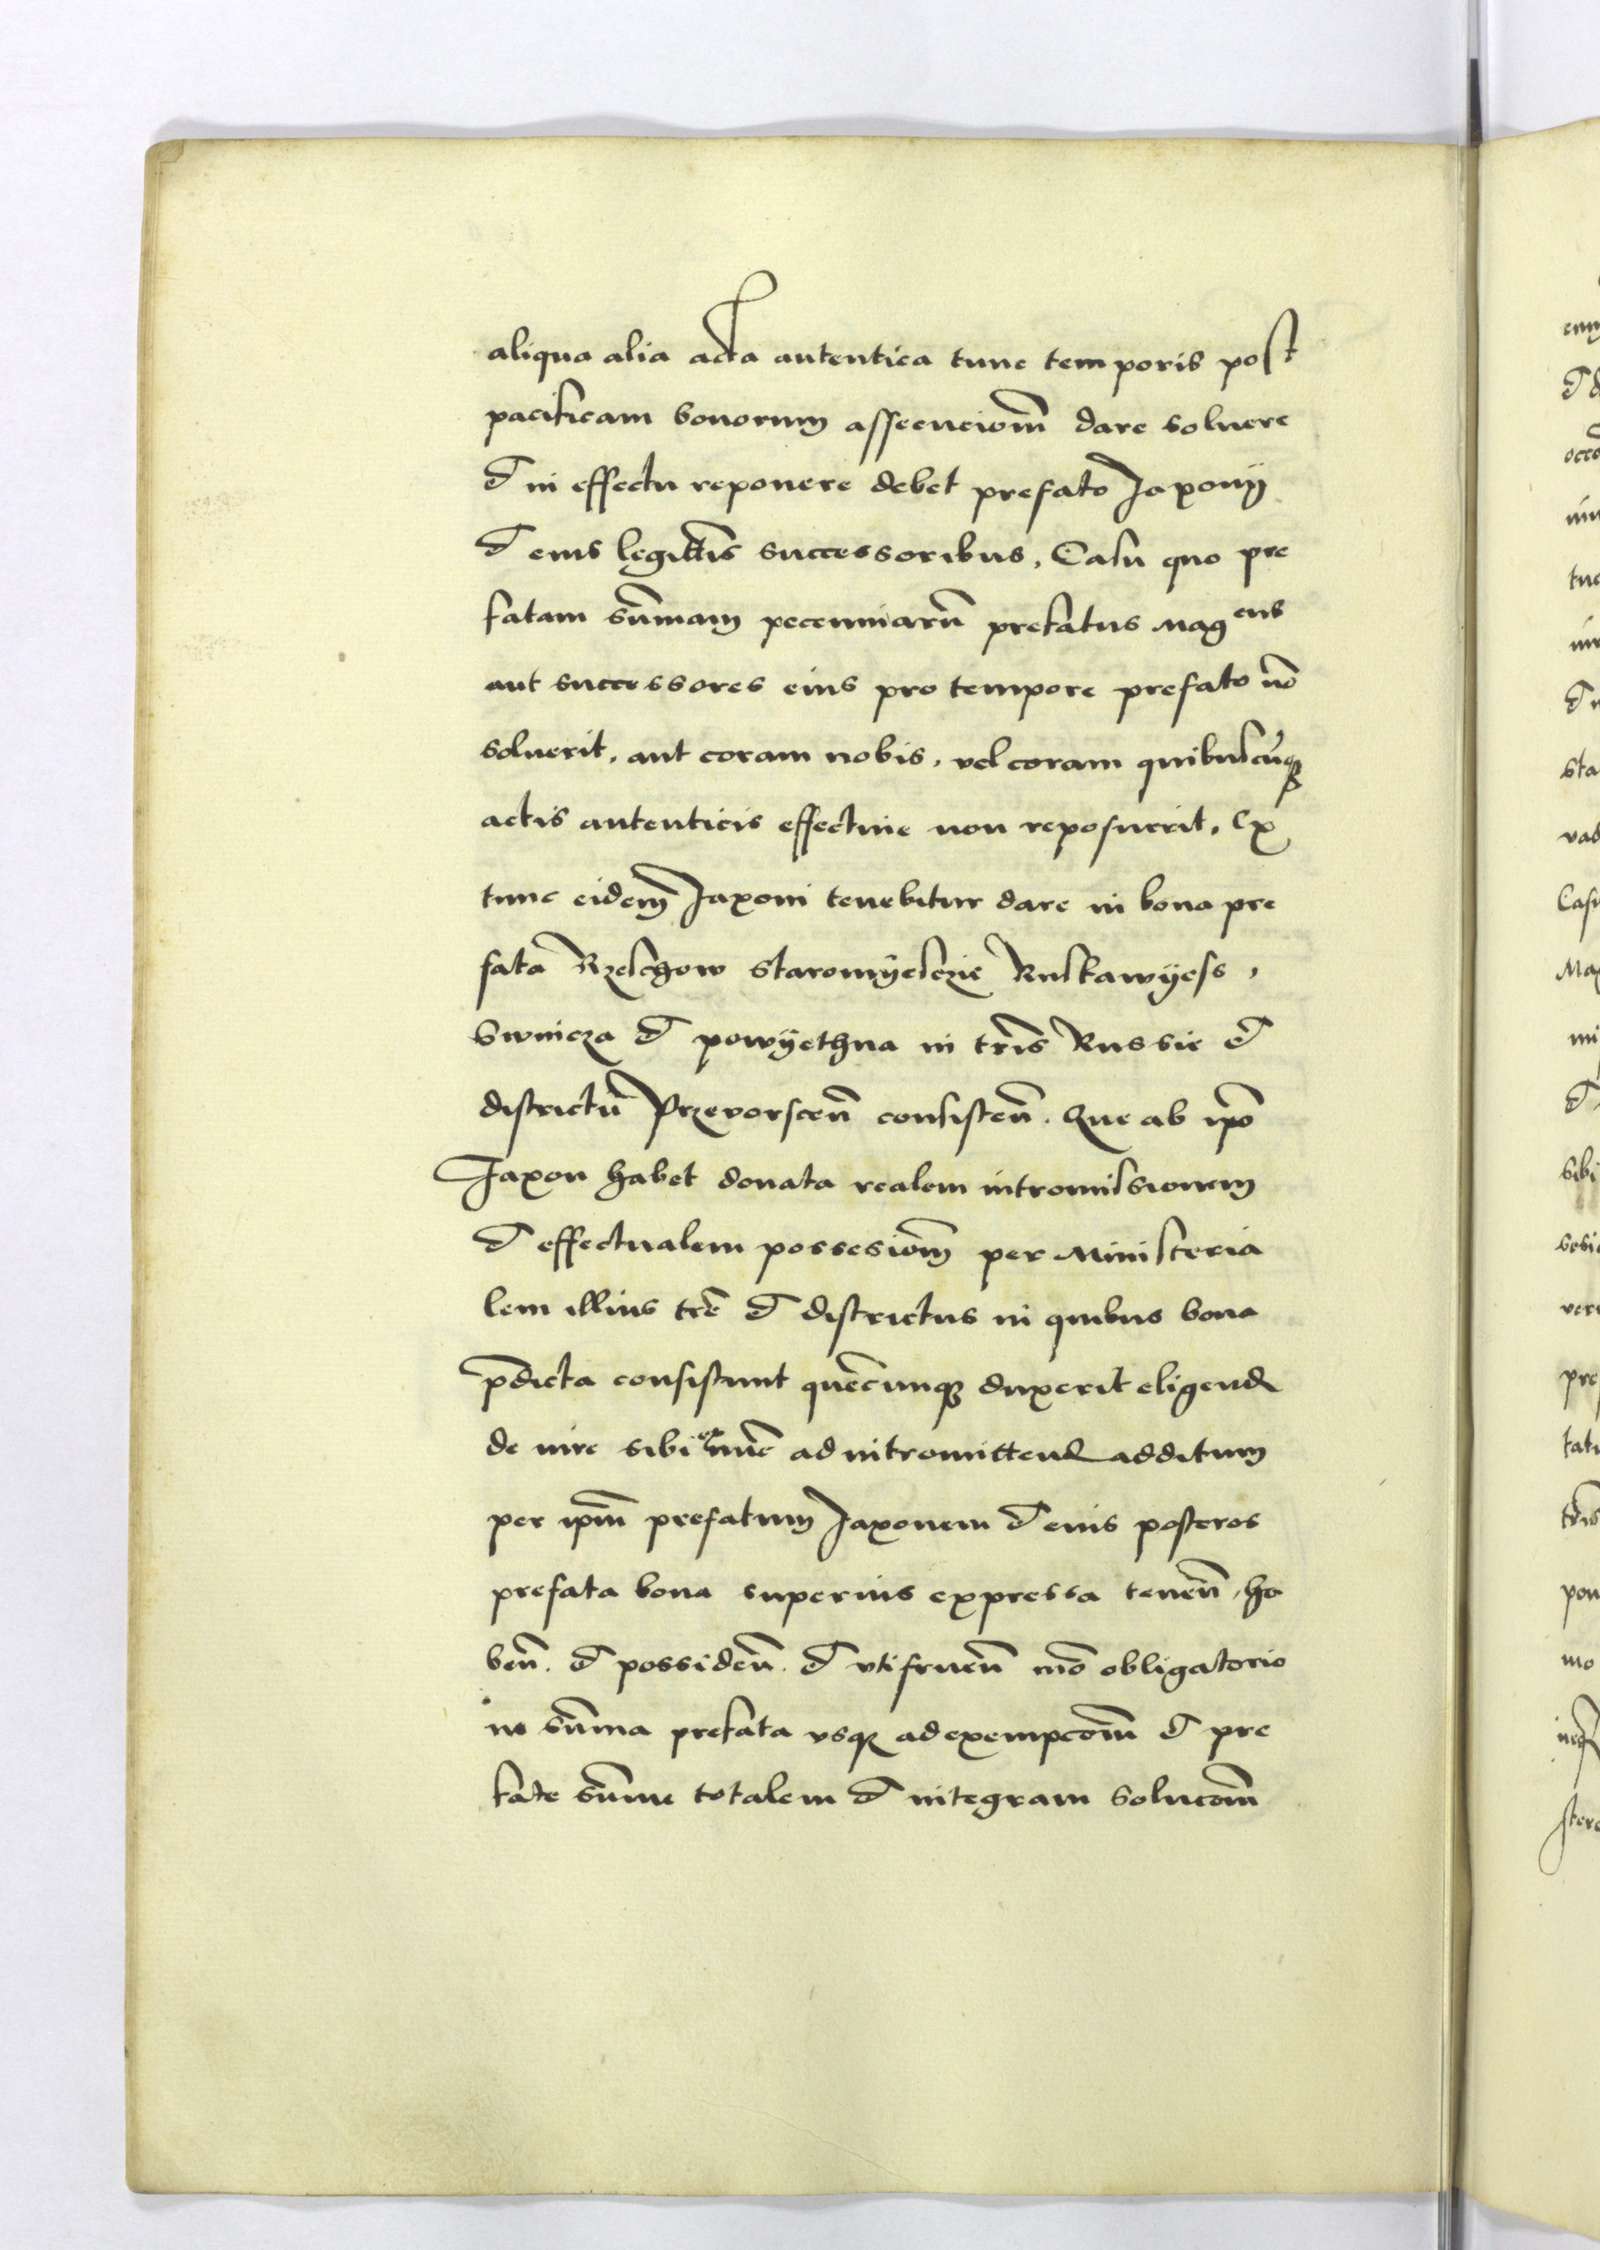 aliqua alia acta autentica tunc temporis post
pacificam bonorum assecuciom̄ dare soluere
et in effectu reponere debet prefato Jaxonij
et eius legittīs successoribus, Casu quo pre
fatam sum̄mam pecunniarū prefatus Mag eus
aut successores eius pro tempore prefato nō
soluerit, aut coram nobis, vel coram quibuscūqꝫ
actis autenticis effectiue non reposuerit, Ex
tunc eidem Jaxoni tenebitur dare in bona pre
fata Rzeschow Staromÿesczie Ruskawÿess,
Swnicza et powÿethna in tris̄ Russie et
districtū Przeworscen̄ consisten̄. Que ab ip̄o
Jaxon habet donata realem intromissionem
et effectualem possesiom̄ per Ministeria
lem illius trē et districtus in quibus bona
p̄dicta consistunt quēcunqꝫ duxerit eligend
de iure sibi ad intromittend additum
per ip̄m prefatum Jaxonem et eius posteros
prefata bona superius expressa tenen̄, ha
ben̄. et possiden̄. et vtifruen̄ mō obligatorio
in sum̄ma prefata vsqꝫ ad exempcom̄ et pre
fate sum̄me totalem et integram solucom̄